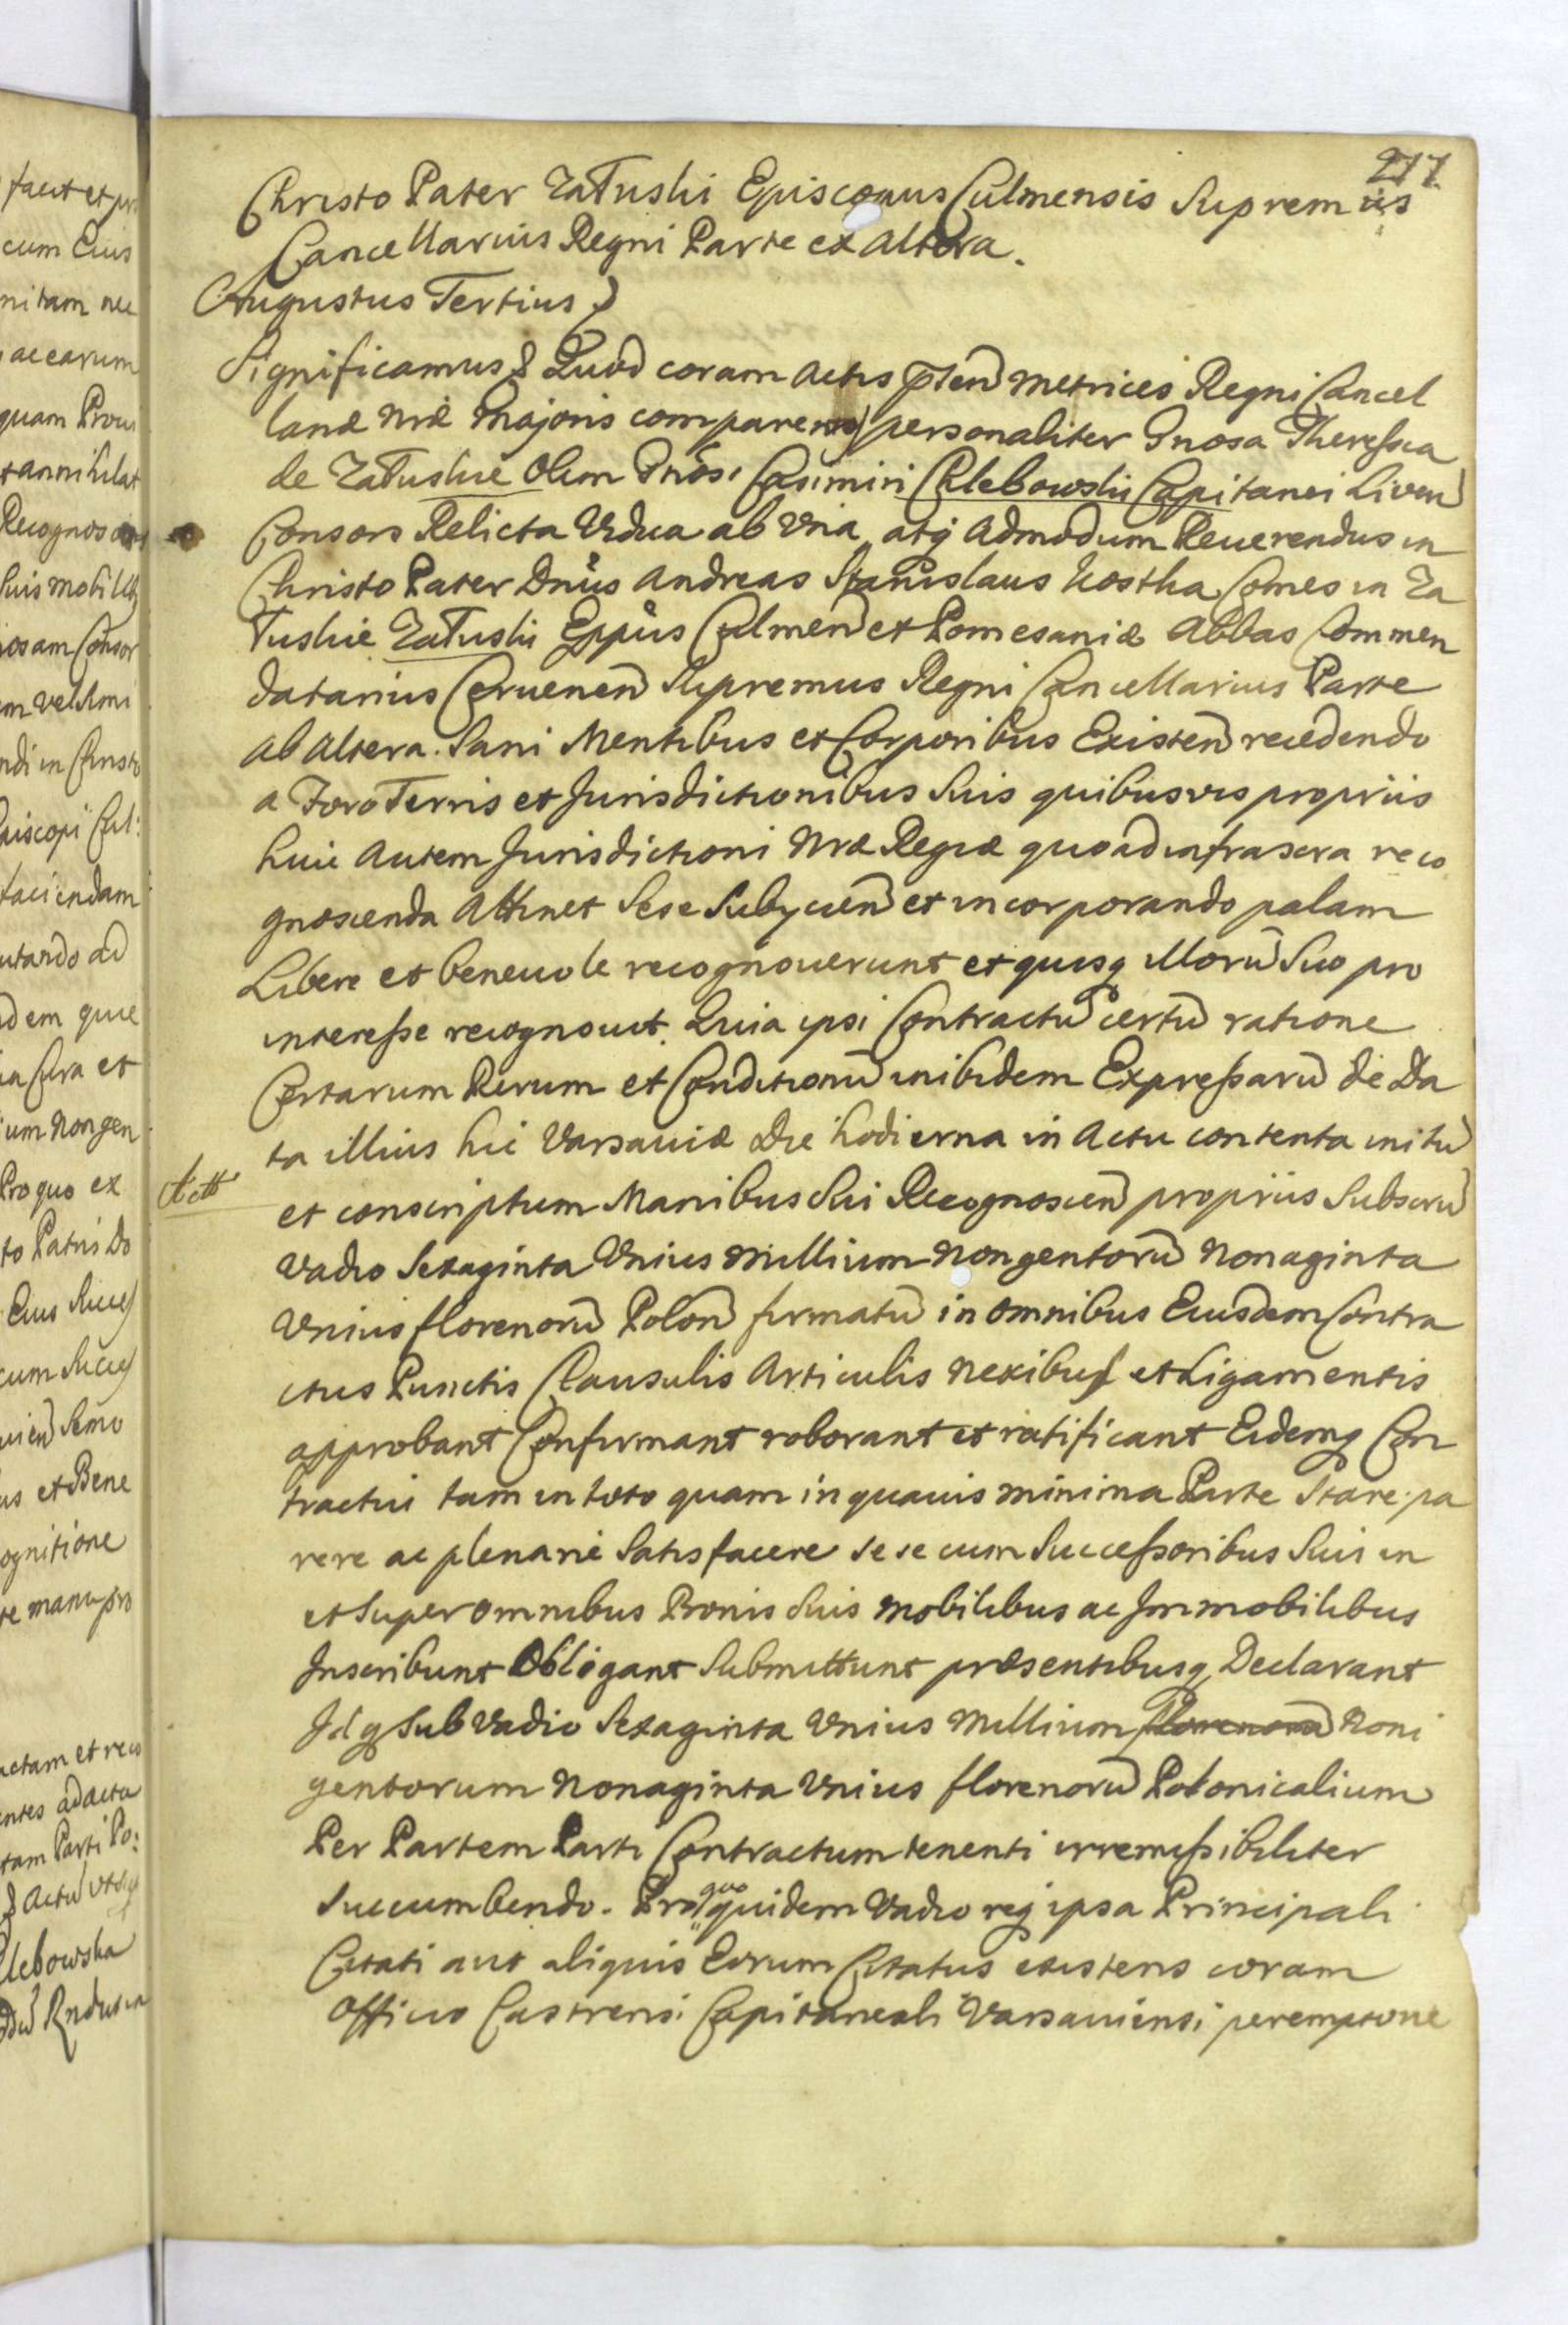 277.
Christo Pater Załuski Episcopus Culmensis Supremus
Cancellarius Regni Parte ex Altera.
Augustus Tertius
Significamus & Quod coram Actis pnten Metrices Regni Cancel
lariæ Nræ Majoris comparen personaliter Gnosa Theressia
de Załuskie Olim Gnosi Casimiri Chlebowski Capitanei Liven
Consors Relicta Vidua ab Vna, atq Admodum Reuerendus in
Christo Pater Dnus Andreas Stanislaus Kostka Comes in Za
łuskie Załuski Eppus Culmen et Pomesaniæ Abbas Commen
datarius Ceruenen Supremus Regni Cancellarius Parte
ab Altera. Sani Mentibus et Corporibus Existen recedendo
a Foro Terris et Jurisdictionibus Suis quibusvis propriis
huic Autem Jurisdictioni Nræ Regiæ quoad infrascra reco
gnoscenda Attinet Sese Subijcien et incorporando palam
Libere et beneuole recognouerunt et quisq illoru Suo pro
interesse recognouit. Quia ipsi Contractu certu ratione
Certarum Rerum et Conditionu inibidem Expressaru de Da
ta illius hic Varsauiæ Die hodierna in Actu contenta initu
Actt
et conscriptum Manibus Sui Recognoscen propriis Subscru
Vadio Sexaginta Vnius Millium Nongentoru Nonaginta
Vnius florenoru Polon firmatu in omnibus Eiusdem Contra
ctus Punctis Clausulis Articulis Nexibus et Ligamentis
approbant Confirmant roborant et ratificant Eidemq Con
tractui tam in toto quam in quauis minima Parte Stare pa
rere ac plenarie Satisfacere sese cum Successoribus Suis in
et Super omnibus Bonis Suis mobilibus ac Immobilibus
Inscribunt Obligant Submittunt præsentibusq Declarant
Idq Sub Vadio Sexaginta Vnius Millium florenoru Noni
gentorum Nonaginta Vnius florenoru Polonicalium
Per Partem Parti Contractum tenenti irremissibiliter
Succumbendo. Pro quo quidem Vadio req ipsa Principali
Citati aut aliquis Eorum Citatus existens coram
Officio Castrensi Capitaneali Varsauiensi peremptorie